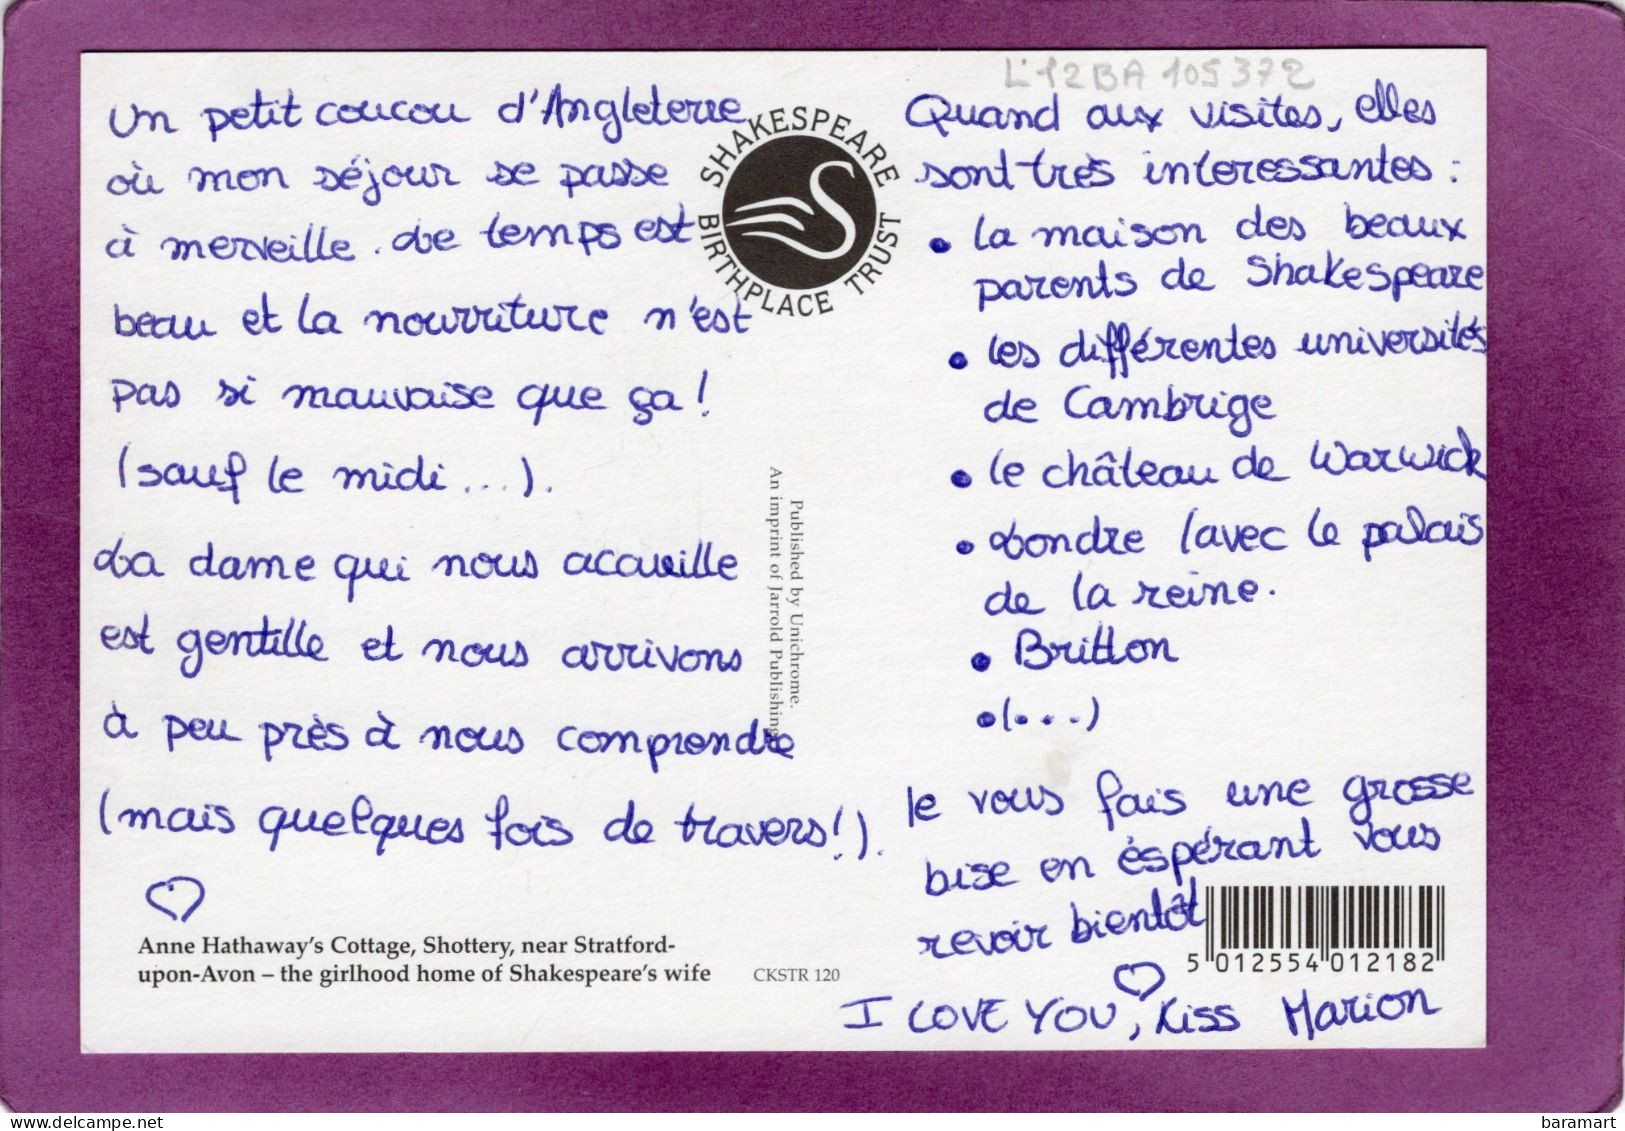 Un petit coucou d'Angleterre
où mon séjour se passe
à merveille. Le temps est
beau et la nourriture n'est
pas si mauvaise que ça !
(sauf le midi ...).
La dame qui nous acaueille
est gentille et nous arrivons
à peu près à nous comprendre
(mais quelques fois de travers !).
Anne Hathaway's Cottage, Shottery, near Stratford-
upon-Avon – the girlhood home of Shakespeare's wife
CKSTR 120
SHAKESPEARE
BIRTHPLACE TRUST
Published by Unichrome.
An imprint of Jarrold Publishing
L'12BA 105372
Quand aux visites, elles
sont très interessantes :
• la maison des beaux
parents de Shakespeare
• les différentes universités
de Cambrige
• le château de Warwick
• Londre (avec le palais
de la reine.
• Britton
• (...)
Je vous fais une grosse
bise en éspérant vous
revoir bientôt
5 012554 012182
I LOVE YOU, Kiss Marion
baramart